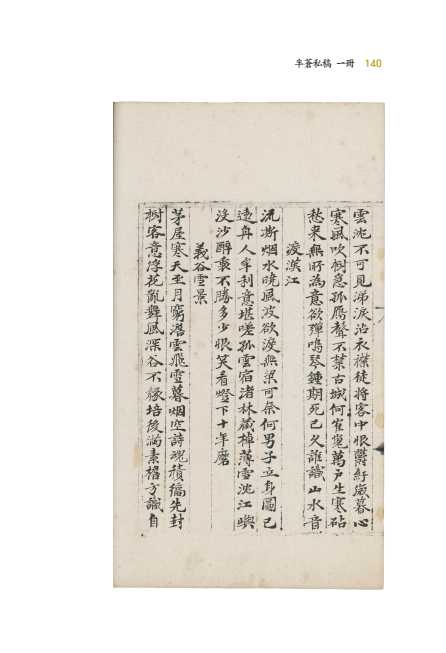 半蒼私稿 一冊 140
雲沈不可見涕淚沾衣襟徒將客中恨爵紆歲暮心
寒風吹樹急孤鴈聲不禁古城何崔嵬萬戶生寒砧
愁来無所為意欲彈鳴琴鍾期死已久誰識山水音
渡漢江
流澌烟水晚風波欲渡無梁可奈何男子立身圖已
遠舟人牟利意堪嗟孤雲宿渚林藏棹薄雪沈江嶼
沒沙醉裏不勝多少恨笑看燈下十年磨
義谷雪景
茅屋寒天至月窮濕雲飛雪暮烟空詩魂積癘先封
樹客意浮花亂舞風深谷不緣培後凋素檐方識自